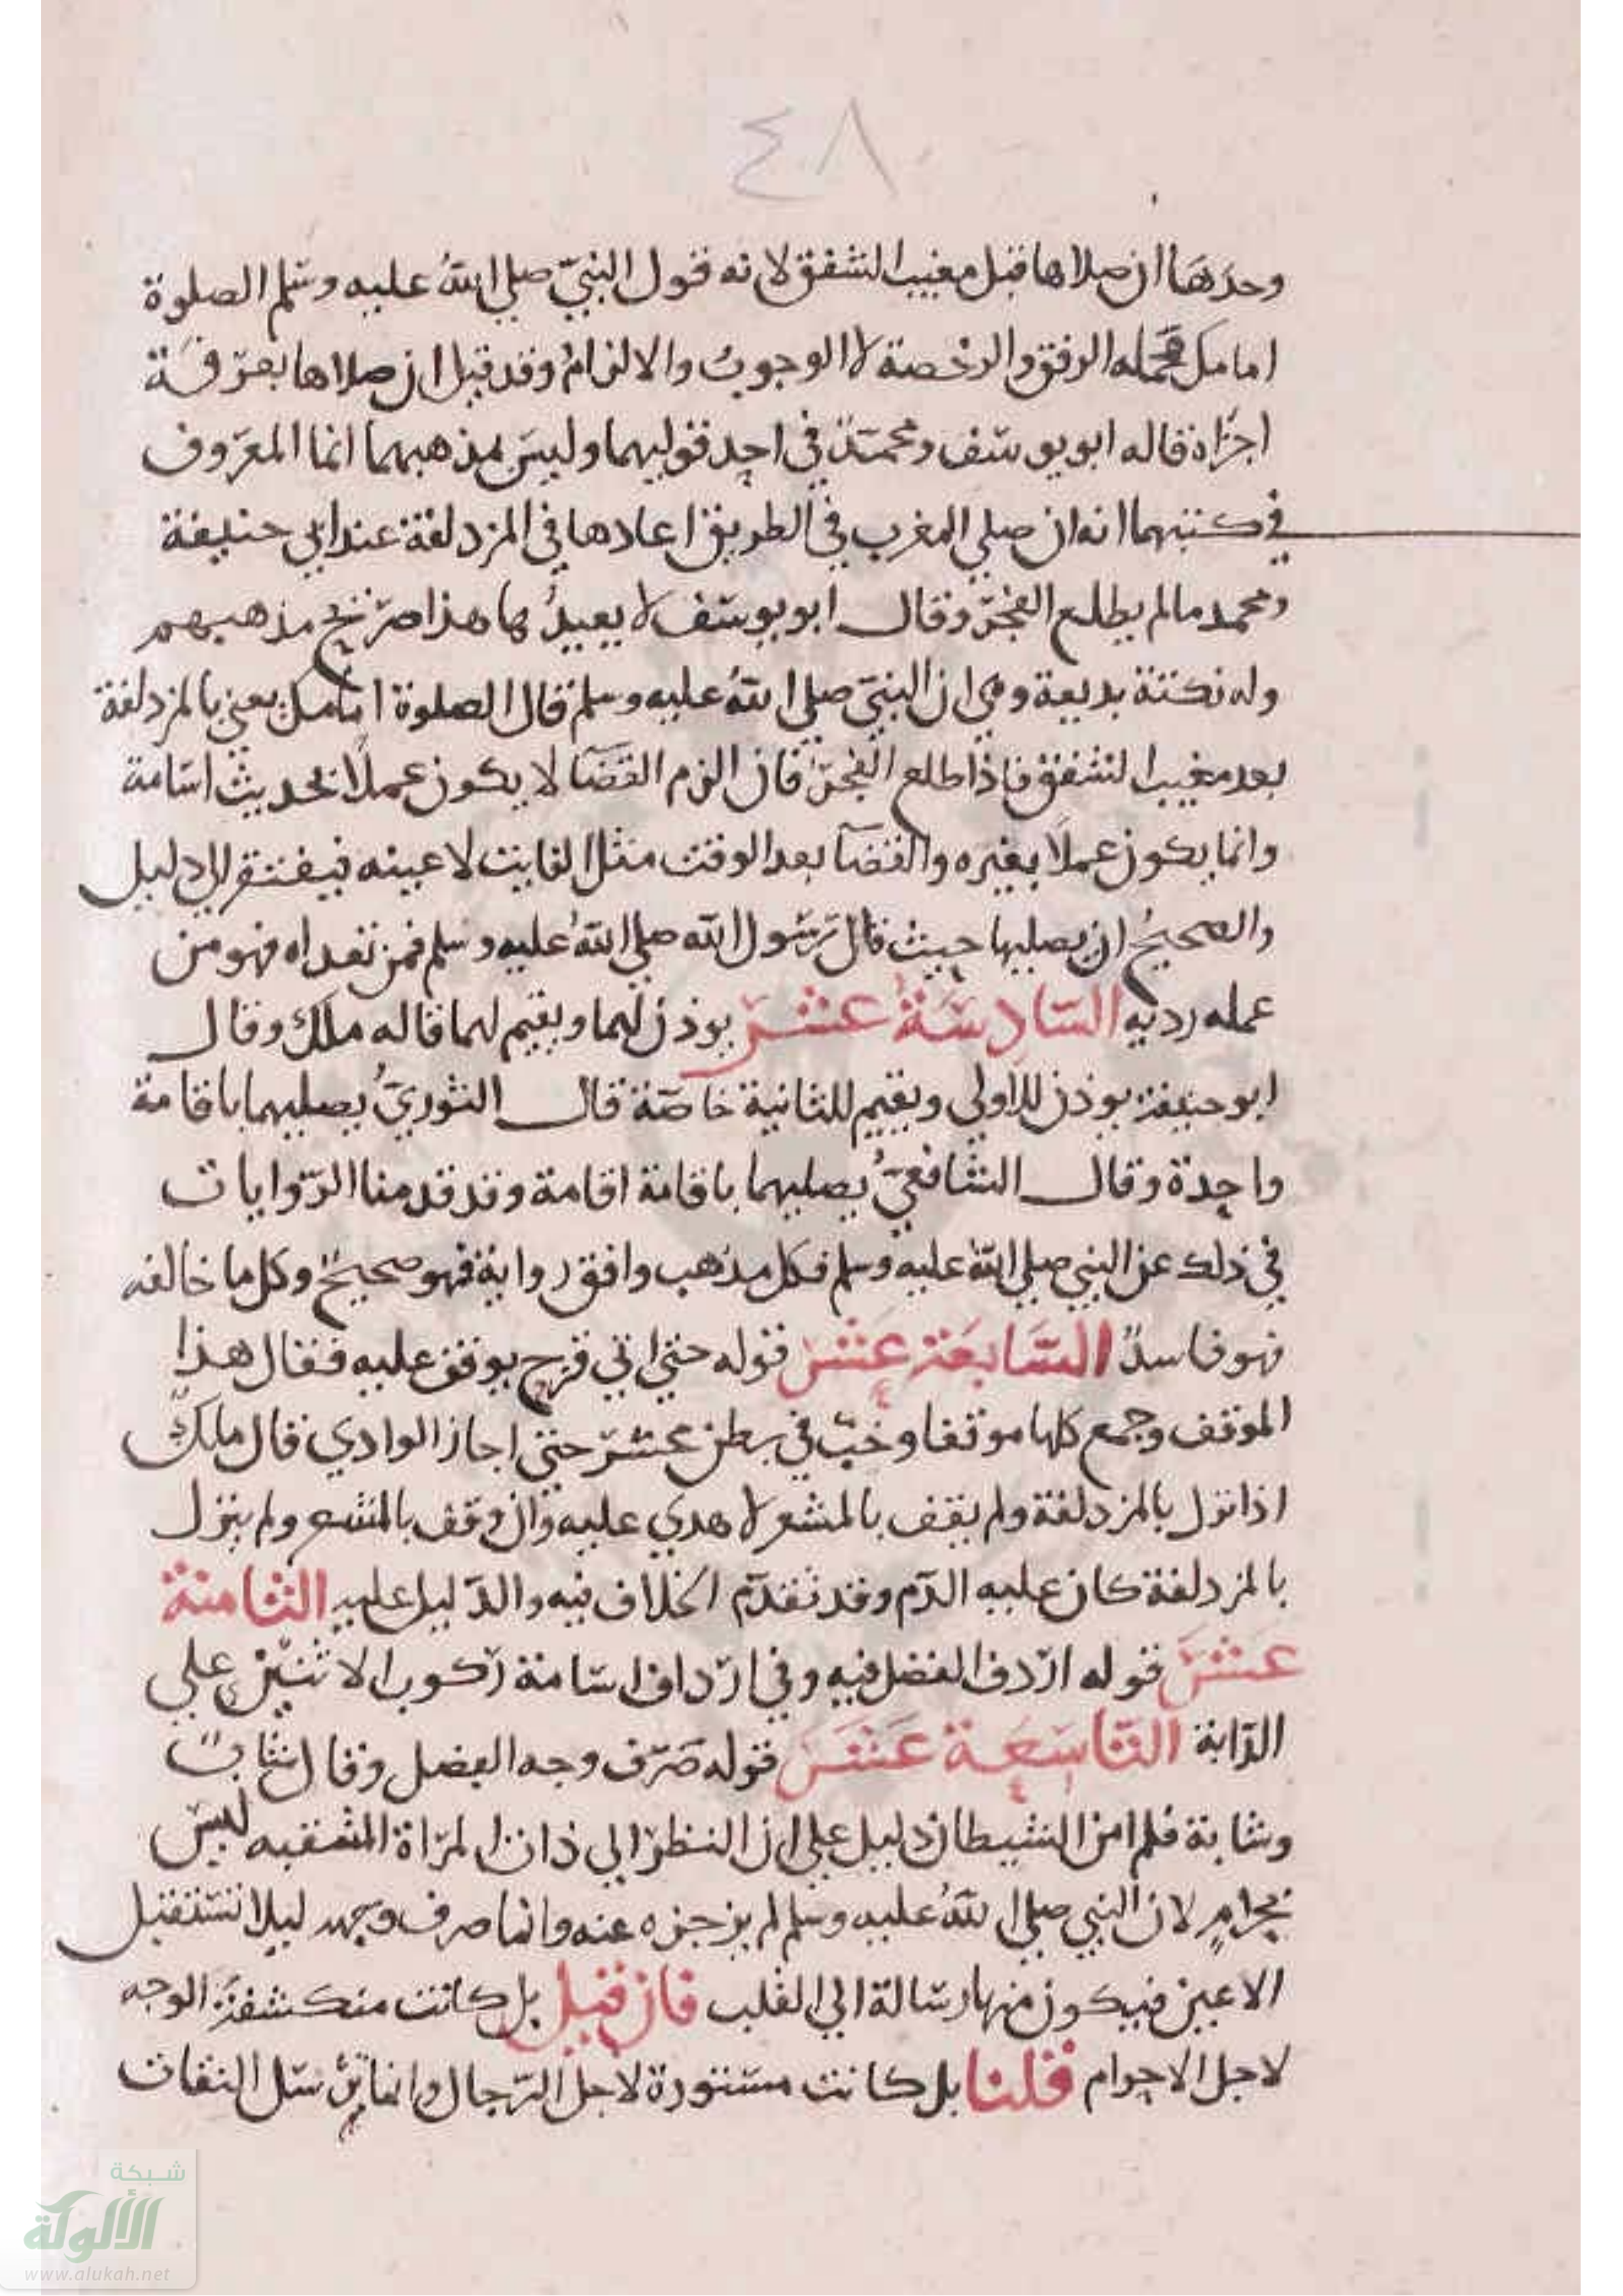 ٤٨
وحدها ان صلاها قبل مغيب الشفق لانه قول النبيّ صلي الله عليه وسلم الصلوة
امامك محمله الرفق والرخصة لا الوجوب والالزام وقد قيل ان صلاها بعرفة
اجزاه قاله ابو يوسف ومحمد في احد قوليهما وليس مذهبهما انما المعروف
في كتبهما انه ان صلي المغرب في الطريق اعادها في المزدلفة عند ابي حنيفة
ومحمد مالم يطلع الفجر وقال ابو يوسف لا يعيدها هذا صريح مذهبهم
وله نكتة بديعة وهي ان النبيّ صلي الله عليه وسلم قال الصلوة امامك يعني بالمزدلفة
بعد مغيب الشفق فاذا طلع الفجر فان الزم القضآ لا يكون عملًا بحديث اسامة
وانما يكون عملًا بغيره والقضآ بعد الوقت مثل الفايت لا عينه فيفتقر الي دليل
والصحيح ان يصليها حيث قال رسول الله صلي الله عليه وسلم فمن تعداه فهو من
عمله رد به السادسة عشر يوذن لهما ويقيم لهما قاله ملك وقال
ابو حنيفة يوذن للاولي ويقيم للثانية خاصّة قال الثوريُّ يصليهما باقامة
واحدة وقال الشافعيُّ يصليهما باقامة اقامة وقد قدمنا الروايات
في ذلك عن النبي صلي الله عليه وسلم فكل مذهب وافق رواية فهو صحيح وكل ما خالفه
فهو فاسدٌ السابعة عشر قوله حتي اتي قزح يوقف عليه فقال هذا
الموقف وجمع كلها موقفا وخبّ في بطن محسّر حتي اجاز الوادي قال ملك
اذا نزل بالمزدلفة ولم يقف بالمشعر لا هدي عليه وان وقف بالمشعر ولم ينزل
بالمزدلفة كان عليه الدم وقد تقدم الخلاف فيه والدليل عليه الثامنة
عشر قوله اردف الفضل فيه وفي ارداف اسامة ركوب الاثنين علي
الدابة التاسعة عشر قوله صرف وجه الفضل وقال شابٌ
وشابة فلم امن الشيطان دليل علي ان النظر الي ذات المراة المشقبه ليس
بحرامٍ لان النبي صلي الله عليه وسلم لم يزجزه عنه وانما صرف وجهه ليلا تستقبل
الاعين فيكون منها رسالة الي القلب فان قيل بل كانت منكشفة الوجه
لاجل الاحرام قلنا بل كانت مستورة لاجل الرجال وانما يرسل الثقات
شبكة
الألوكة
www.alukah.net